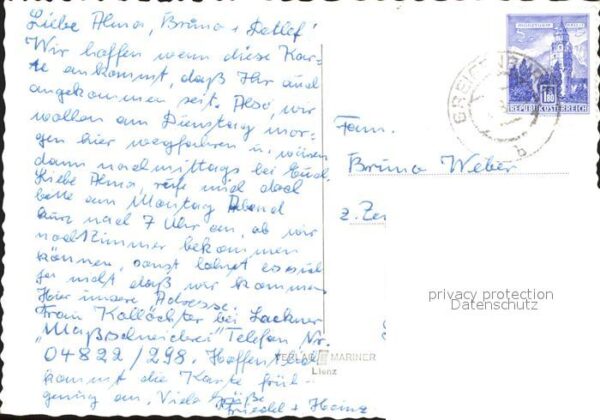 Liebe Alma, Bruno + Detlef!
Wir hoffen wenn diese Kar-
te ankommt, daß Ihr auch
angekommen seit. Also, wir
wollen am Dienstag mor-
gen hier wegfahren u. wären
dann nachmittags bei Euch.
Liebe Alma, rufe mich doch
bitte am Montag Abend
kurz nach 7 Uhr an, ob wir
noch Zimmer bekommen
können, sonst lohnt es sich
ja nicht daß wir kommen
Hier unsere Adresse.
Frau Kollöchter bei Lackner
"Maßschneiderei" Telefon Nr.
04822/298. Hoffentlich
kommt die Karte früh-
genug an. Viele Grüße
Friedel + Heinz
REPUBLIK ÖSTERREICH
Fam.
Bruno Weber
z. Zt
privacy protection
Datenschutz
VERLAG MARINER
Lienz